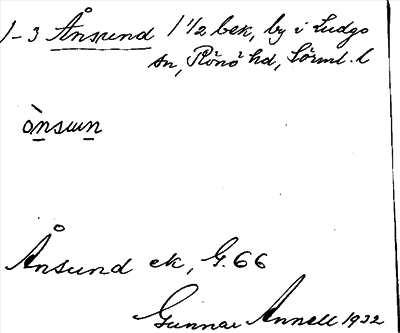 1-3 Ånsund 1 1/2 bek, by i Ludgo
sn, Rönö hd, Sörml. l
ònsun
Ånsund ek, G. 66
Gunnar Annell 1932